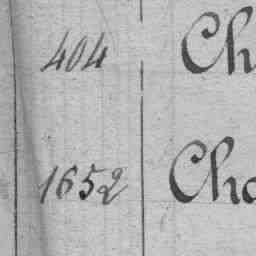 404 Ch
1652 Cha